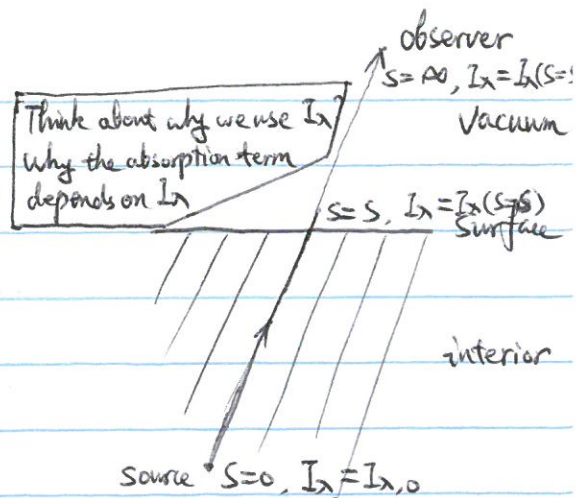 observer
S=∞, I_λ=I_λ(S=s
Vacuum
Think about why we use I_λ
why the absorption term
depends on I_λ
S=s, I_λ=I_λ(S=s)
Surface
interior
source S=0, I_λ=I_λ,0